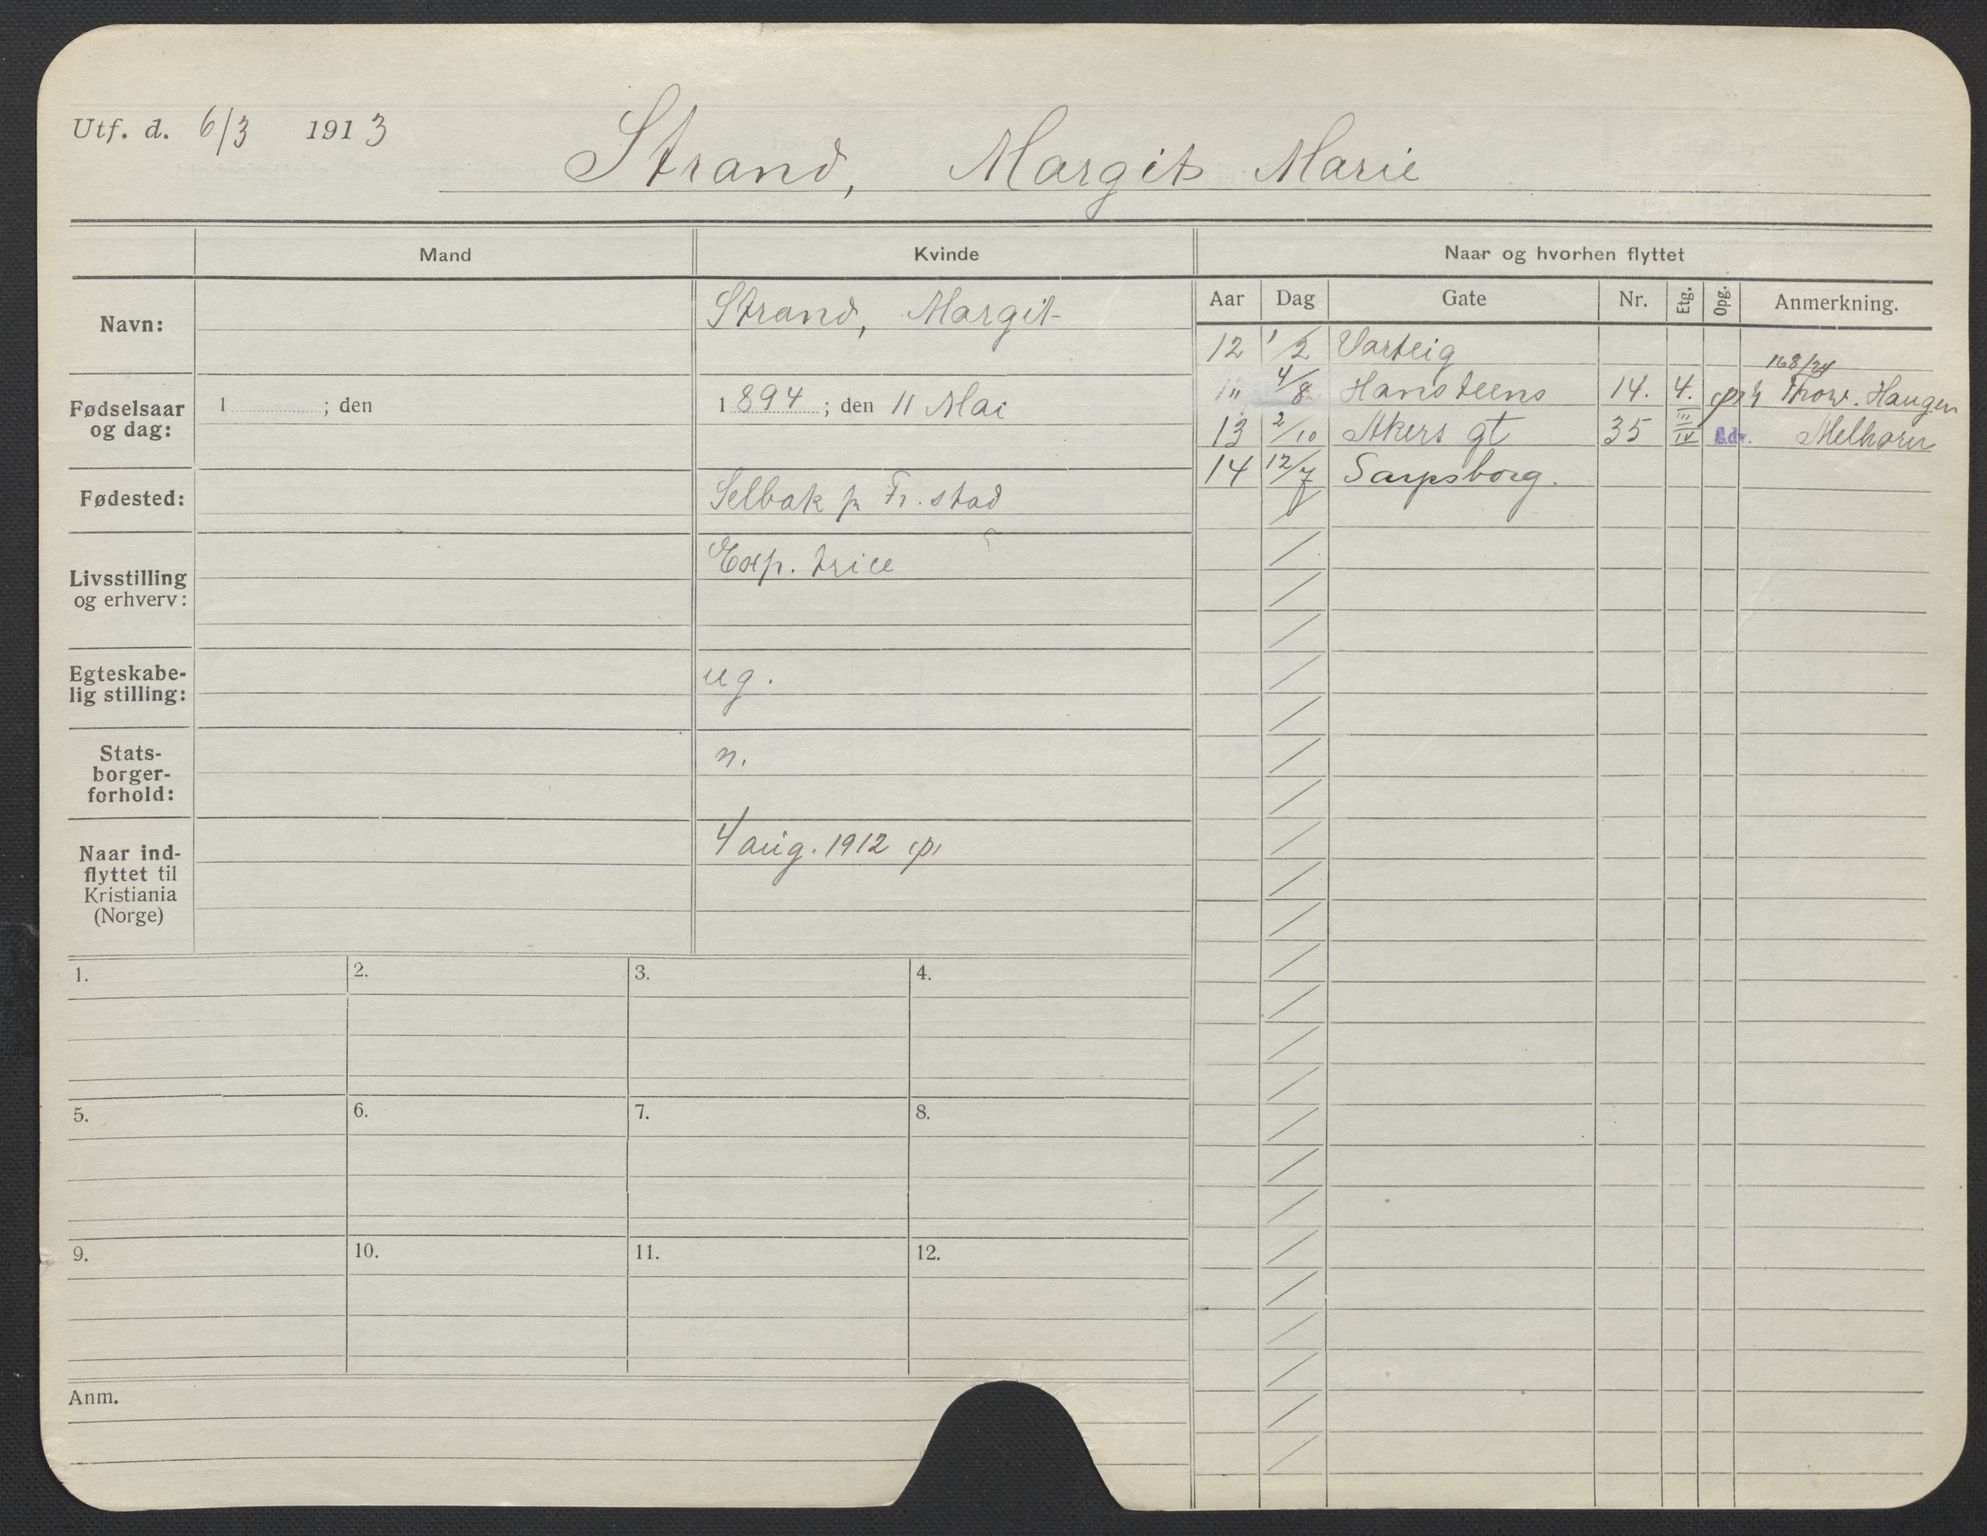 Utf. d. 6/3 1913
Strand, Margit Marie
Mand Kvinde Naar og hvorhen flyttet
Aar Dag Gate Nr. Etg. Opg. Anmerkning.
Navn: Strand, Margit
12 1/2 Varteig
168/24
" 4/8 Hansteens 14. 4. Thorv. Haugen
13 2/10 Akers gt 35 III/IV Adv. Melhorn
14 12/7 Sarpsborg.
Fødselsaar
og dag:
1 ; den
1894 ; den 11 Mai
Fødested: Selbak p Fr. stad
Livsstilling
og erhverv:
Exp. trice
Egteskabe-
lig stilling:
ug.
Stats-
borger-
forhold:
n.
Naar ind-
flyttet til
Kristiania
(Norge)
4 aug. 1912
1. 2. 3. 4.
5. 6. 7. 8.
9. 10. 11. 12.
Anm.